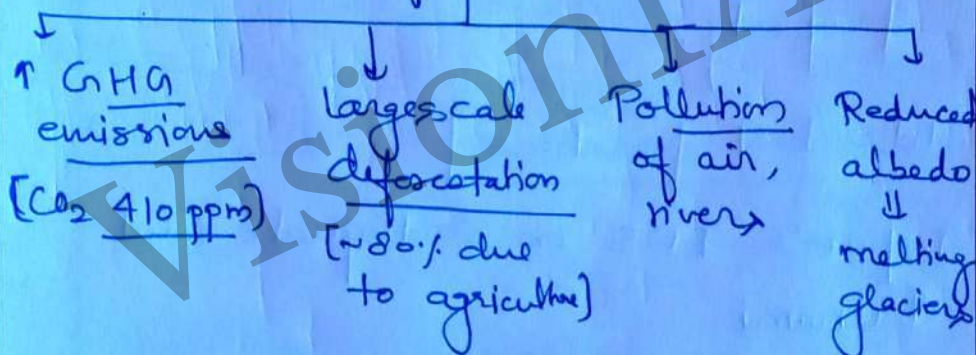 ↑ GHG
emissions
[CO₂ 410 ppm]
largescale
deforestation
[~80% due
to agriculture]
Pollution
of air,
rivers
Reduced
albedo
⇓
melting
glaciers
Vision